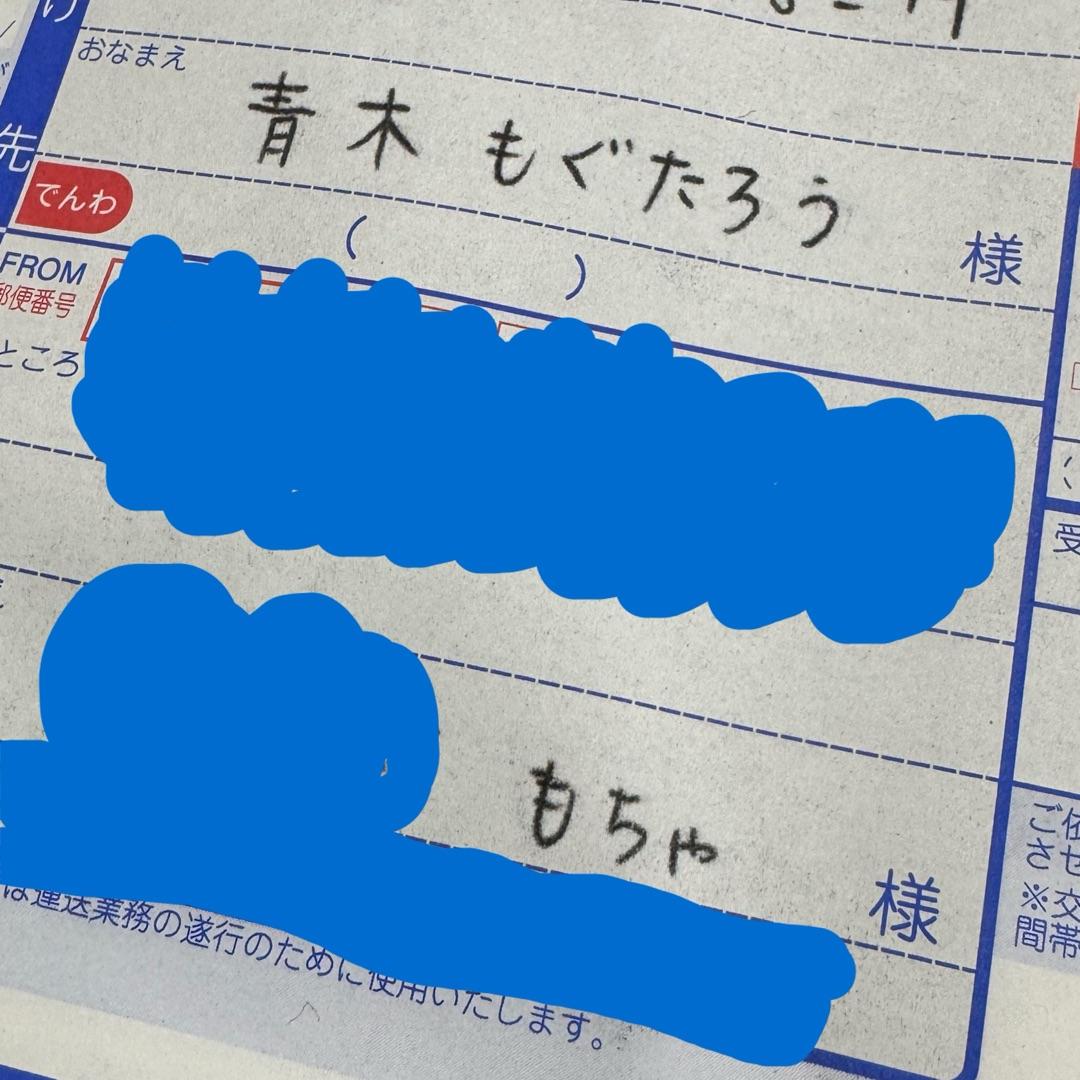 おなまえ
青木 もぐたろう 様
先
でんわ
( )
FROM
郵便番号
ところ
もちゃ 様
は運送業務の遂行のために使用いたします。
受
ご依
させ
※交
間帯